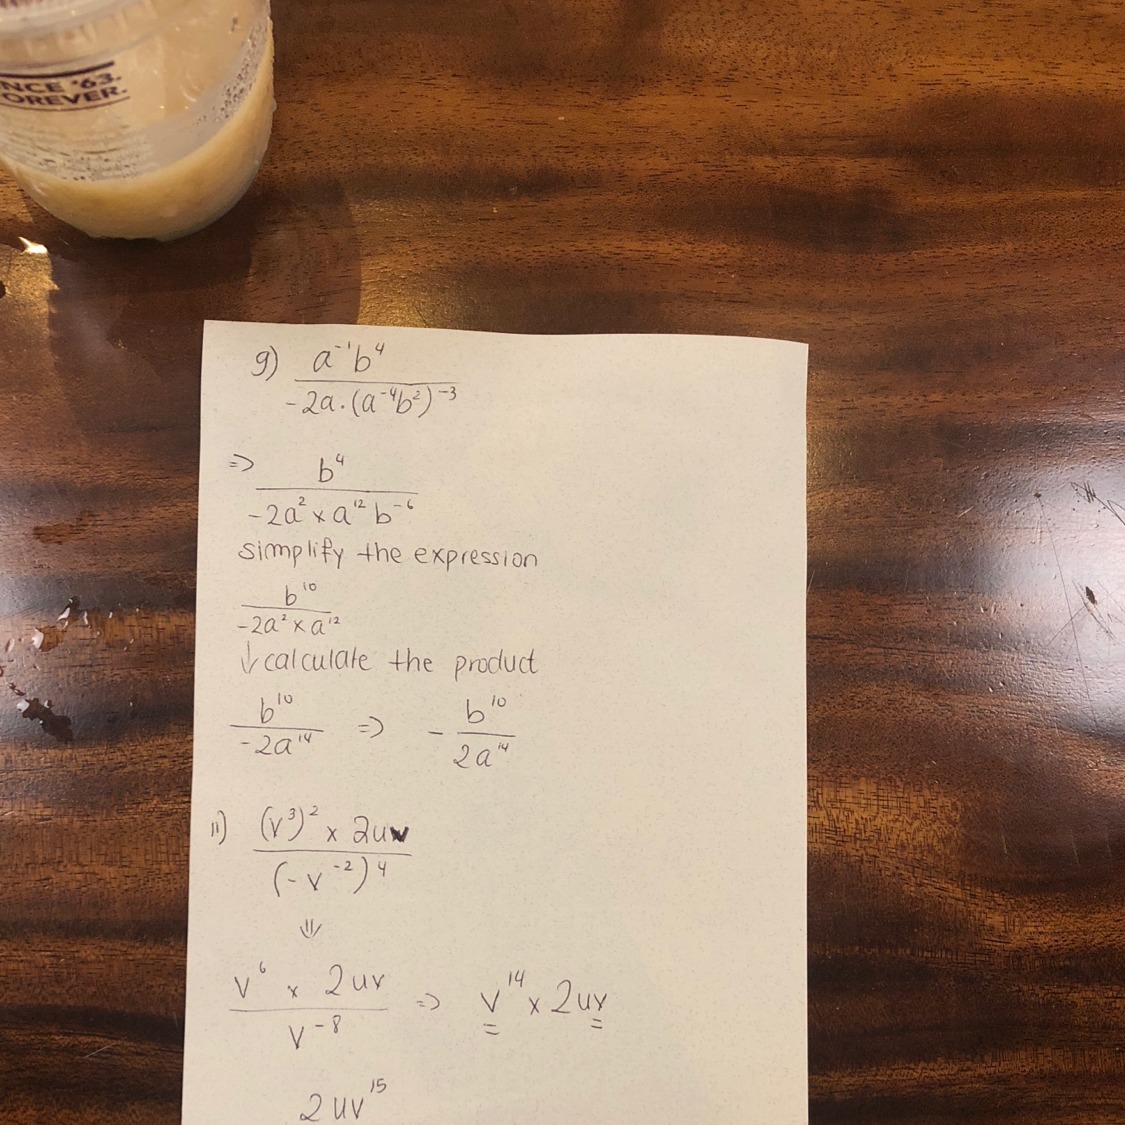 NCE '63.
OREVER.
9) a⁻¹b⁴
-2a.(a⁻⁴b²)⁻³
=> b⁴
-2a² x a¹² b⁻⁶
simplify the expression
b¹⁰
-2a² x a¹²
↓ calculate the product
b¹⁰ => - b¹⁰
-2a¹⁴ 2a¹⁴
11) (v³)² x 2uv
(-v⁻²)⁴
⇓
v⁶ x 2uv => v¹⁴ x 2uv
v⁻⁸
2uv¹⁵